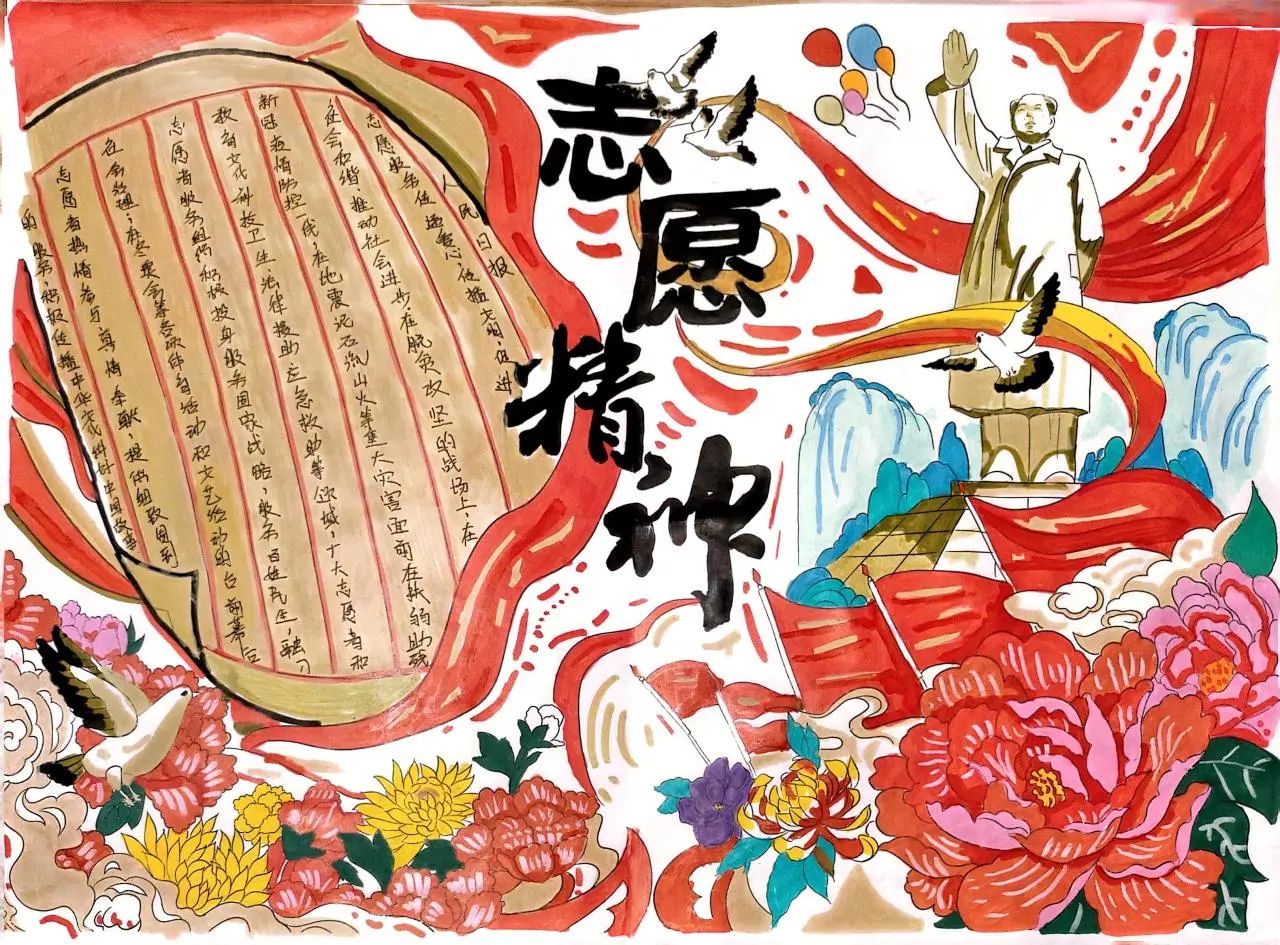 志愿
精神
人民日报
志愿服务传递爱心、传播文明,促进
社会和谐、推动社会进步。在脱贫攻坚的战场上,在
新冠疫情防控一线,在地震泥石流山火等重大灾害面前在扶弱助残
教育文化科技卫生、法律援助应急救助等领域,大志愿者和
志愿者服务组织积极投身服务国家战略,服务百姓民生,融
社会治理;在冬奥会等各项体育活动和文艺活动的台前幕后
志愿者热情参与、情奉献,提供细致周到
的服务,积极传播中华文化中国故事